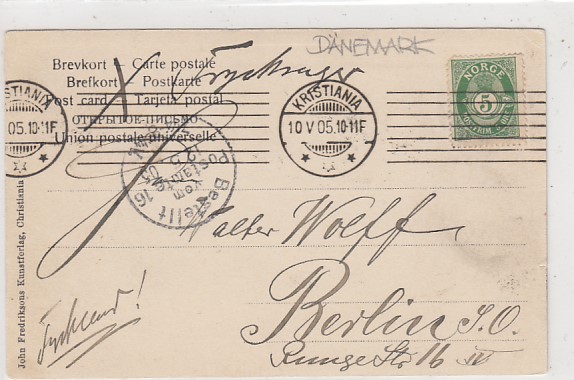 DÄNEMARK
Brevkort Carte postale
Brefkort Postkarte
Post card Tarjeta postal
ОТКРЫТОЕ-ПИСЬМО
Union postale universelle
Trycksager
KRISTIANIA
05.10-11F
KRISTIANIA
10 V 05.10-11F
NORGE
5
Bestellt
vom
Postamte
16
Walter Wolff
Berlin S.O.
Runge Str 16 IV
Tyskland!
John Fredriksons Kunstforlag, Christiania